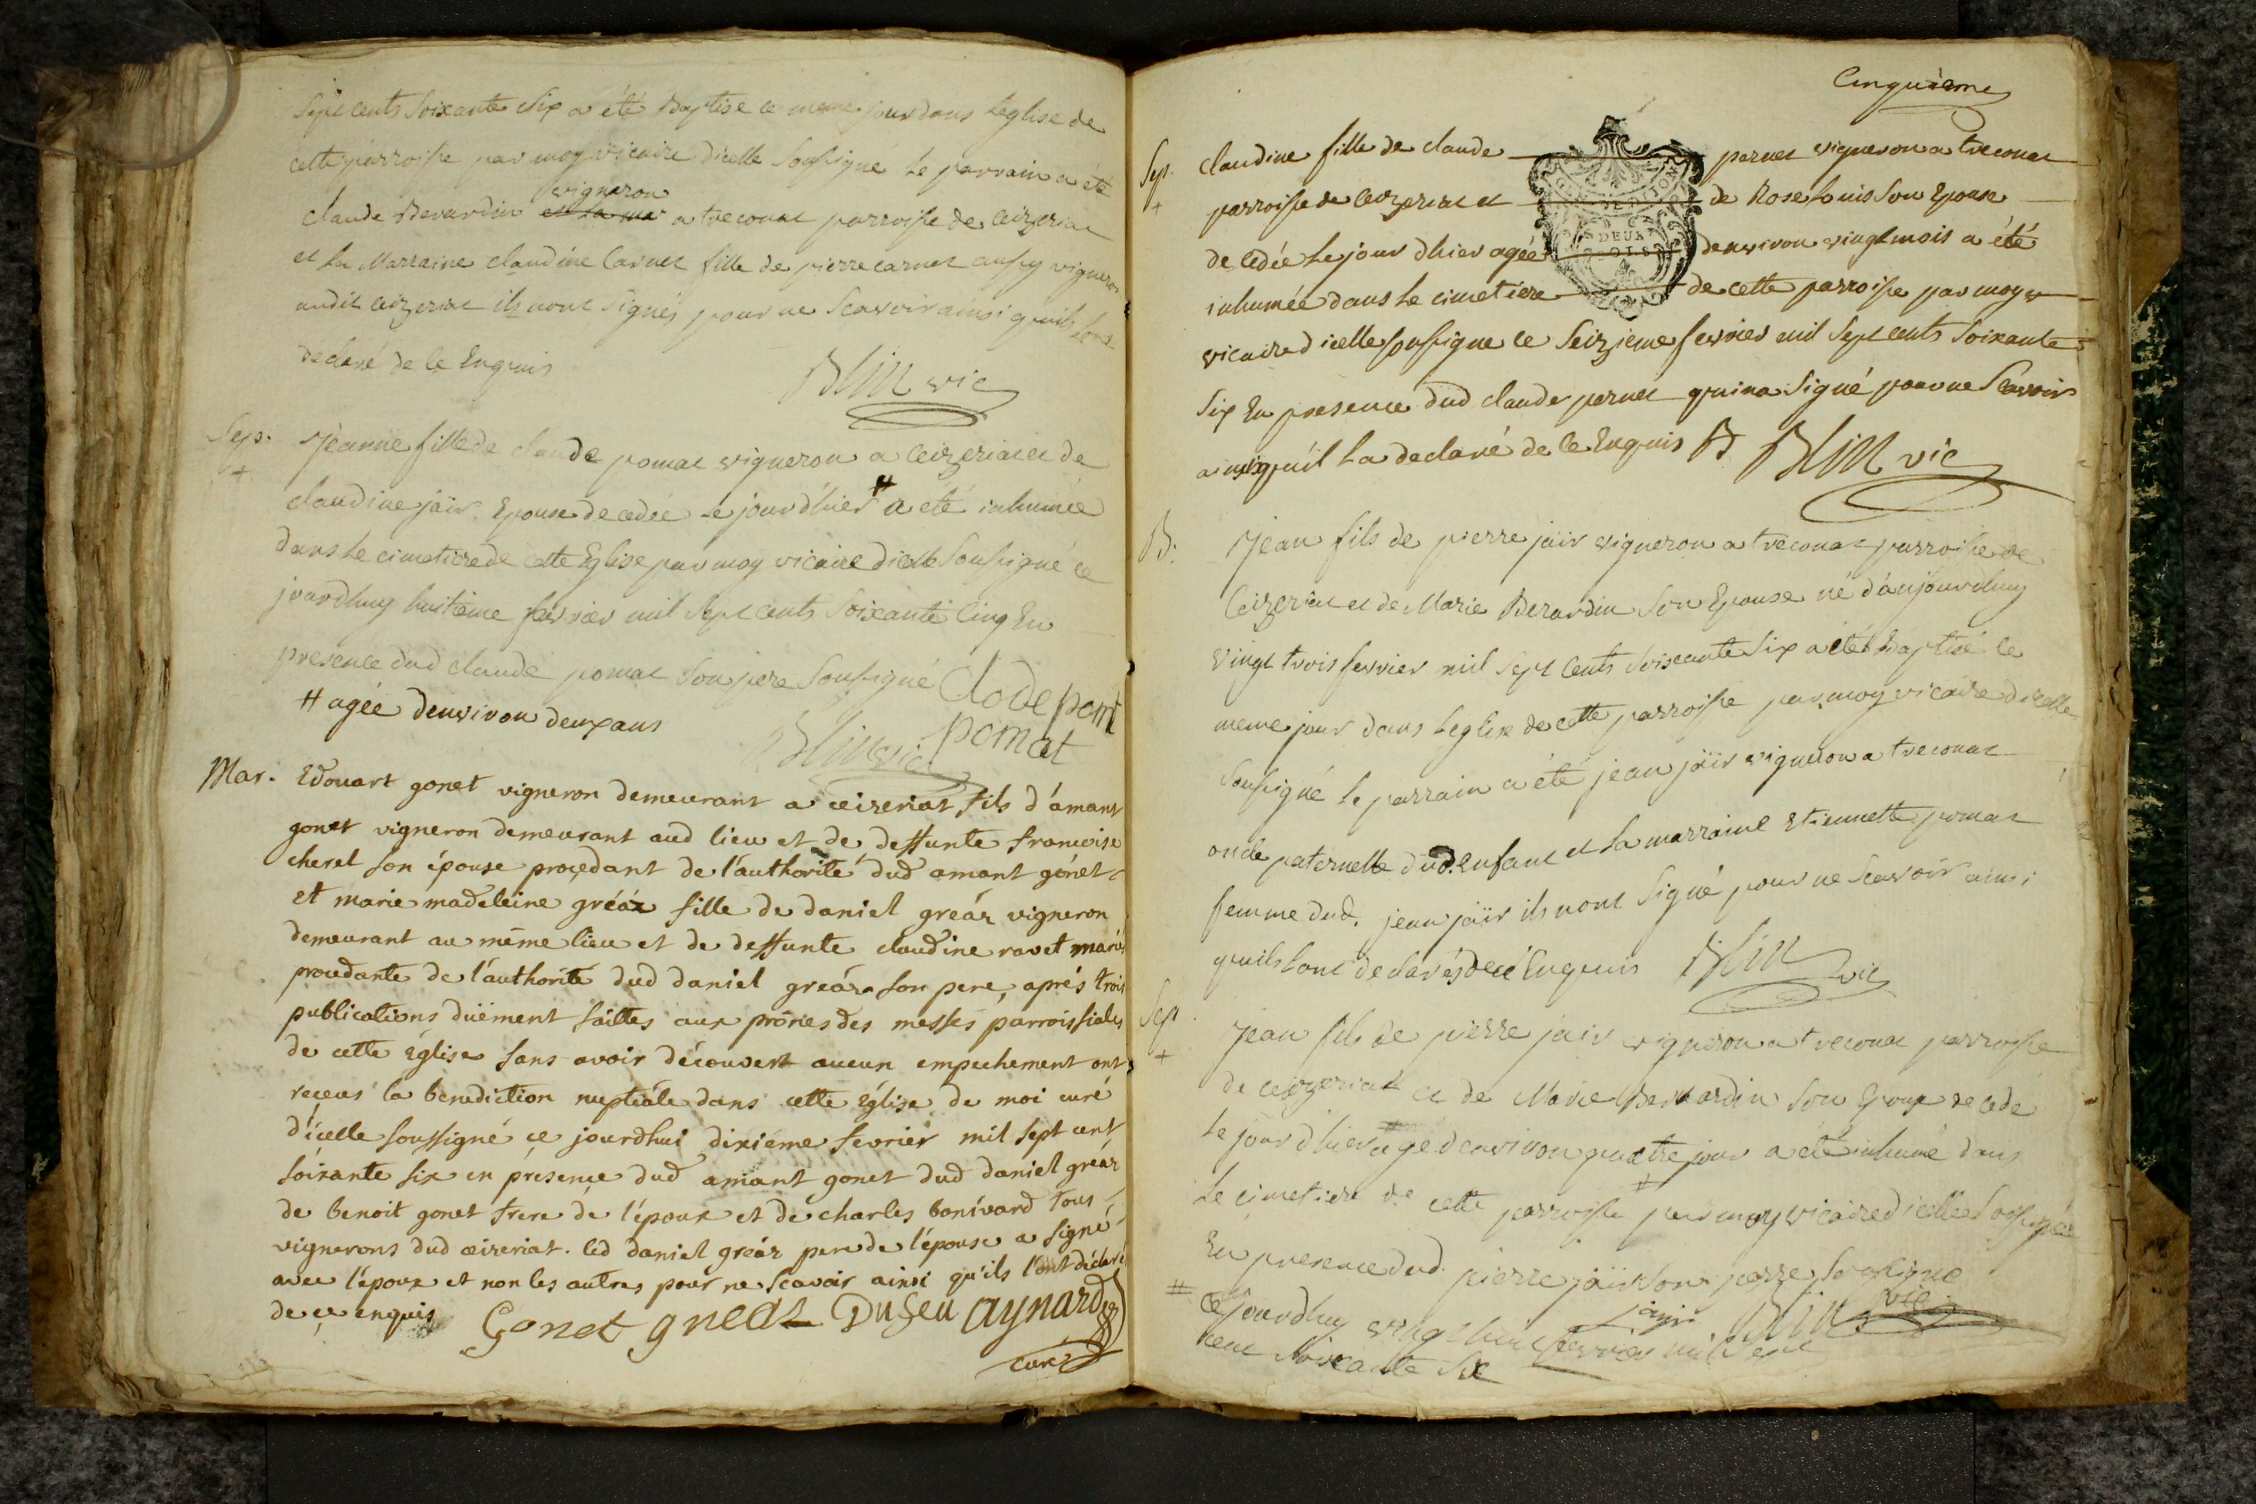 Sept cents soixante Six a été Baptisé ce meme jour dans leglise de
cette parroisse par moy vicaire dicelle soussigné le parrain a été
vigneron
claude Berardin a treconat parroisse de ceizeriat
et la Marraine claudine Carnet fille de pierre carnet aussy vigneron
audit ceizeriat ils nont signés pour ne scavoir ainsi quils lont
declaré de ce Enquis
Blin vic
Sep.
+
Jeanne fille de claude pomat vigneron a Ceizeriat et de
claudine jäir Epouse decedée le jour d'hier # a été inhumée
dans le cimetiere de cette Eglise par moy vicaire dicelle Soussigné ce
jourdhuy huitieme fevrier mil Sept cents Soixante Cinq En
presence dud claude pomat Son pere Soussigné
Clode pom
pomat
# agée denviron deux ans
Blin vic
Mar.
Edouart gonet vigneron demeurant a ceizeriat fils d'amant
gonet vigneron demeurant aud lieu et de deffunte francoise
cheret son épouse proçedant de l'authorité dud amant gónet
et marie madeleine gréáz fille de daniel greáz vigneron
demeurant au même lieu et de deffunte claudine ravet mariés
procedante de l'authorite dud daniel greáz son pere, aprés trois
publications düëment faittes aux prônes des messes parroissiales
de cette Église sans avoir découvert aucun empechement ont
reçeus la benediction nuptiale dans cette Église de moi curé
d'icelle soussigné çe jourdhui dixiéme fevrier mil sept cent
soixante six en presençe dud amant gonet dud daniel greáz
de benoit gonet frere de l'époux et de charles bonivard tous
vignerons dud ceizeriat. led daniel greáz pere de l'épouse a signé
avec l'époux et non les autres pour ne scavoir ainsi qu'ils l'ont déclaré
de çe enquis
Gonet greaz Dufeu aynard
curé
Cinquieme
Sep.
+
claudine fille de claude pernet vigneron a treconat
parroisse de Ceizeriat et de Rose Louis Son Epouse
decedée le jour dhier agée denviron vingt mois a été
inhumée dans le cimetiere de cette parroisse par moy
vicaire dicelle soussigné ce Seizieme fevrier mil Sept cents Soixante
Six En presence dud claude pernet qui na Signé pour ne Scavoir
ainsi qu'il la declaré de ce Enquis B Blin vic
DEUX
SOLS
B.
Jean fils de pierre jäir vigneron a treconat parroisse de
Ceizeriat et de Marie Berardin Son Epouse né d'aujourdhuy
vingt trois fevrier mil Sept Cents Soixante Six a été Baptisé le
meme jour dans leglise de cette parroisse par moy vicaire dicelle
Soussigné le parrain a été jean jäir vigneron a treconat
oncle paternelle dud. enfant et la marraine Etiennette pomat
femme dud. jean jäir ils nont Signé pour ne Scavoir ainsi
quils lont declarés de ce Enquis
Blin vic
Sep
+
Jean fils de pierre jair vigneron a treconat parroisse
de ceizeriat et de Marie Berardin Son Epouse decedé
le jour dhier agé denviron quatre jour a été inhumé dans
le cimetiere de cette parroisse # par moy vicaire dicelle Soussigné
En presence dud. pierre jäir son pere Soussigné
jayr Blin vic
# Ce jourdhuy vingt huit fevrier mil Sept
cent Soixante Six